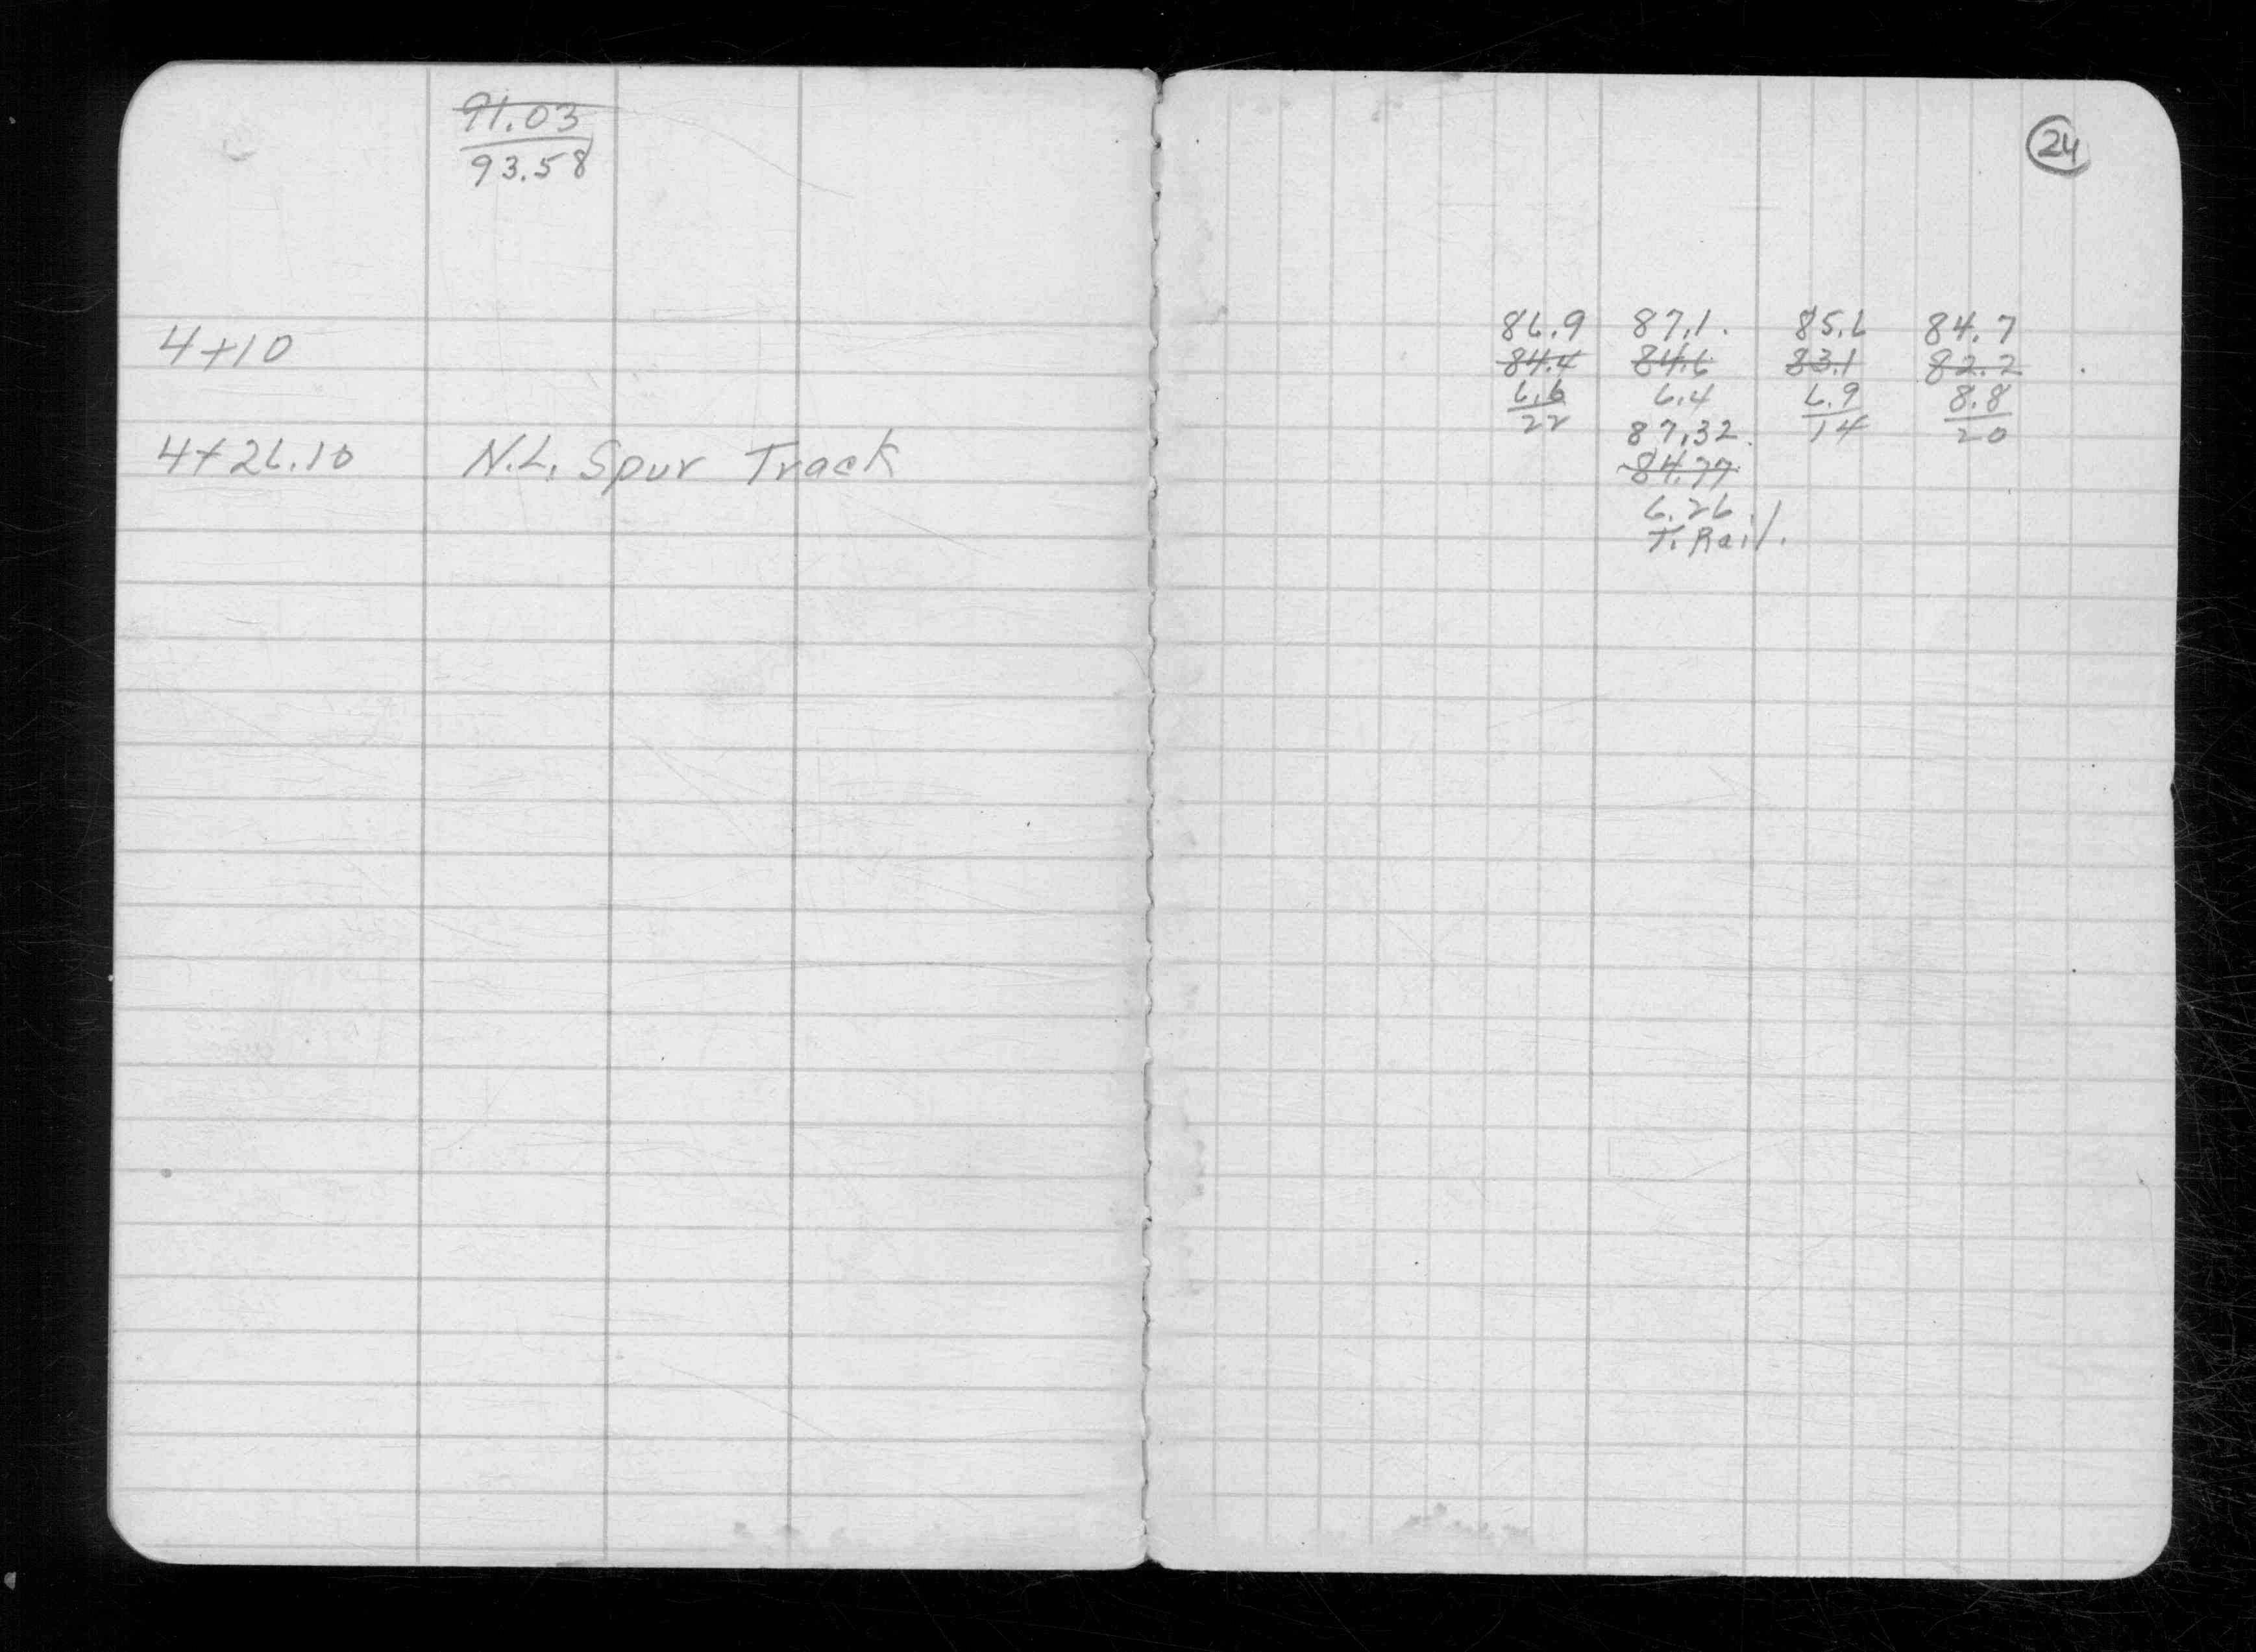 91.03
93.58
24
4+10
86.9 87.1. 85.6 84.7
84.4 84.6 83.1 82.2
6.6 6.4 6.9 8.8
22 87.32. 14 20
4+26.10 N.L. Spur Track
84.77
6.26
T. Rail.